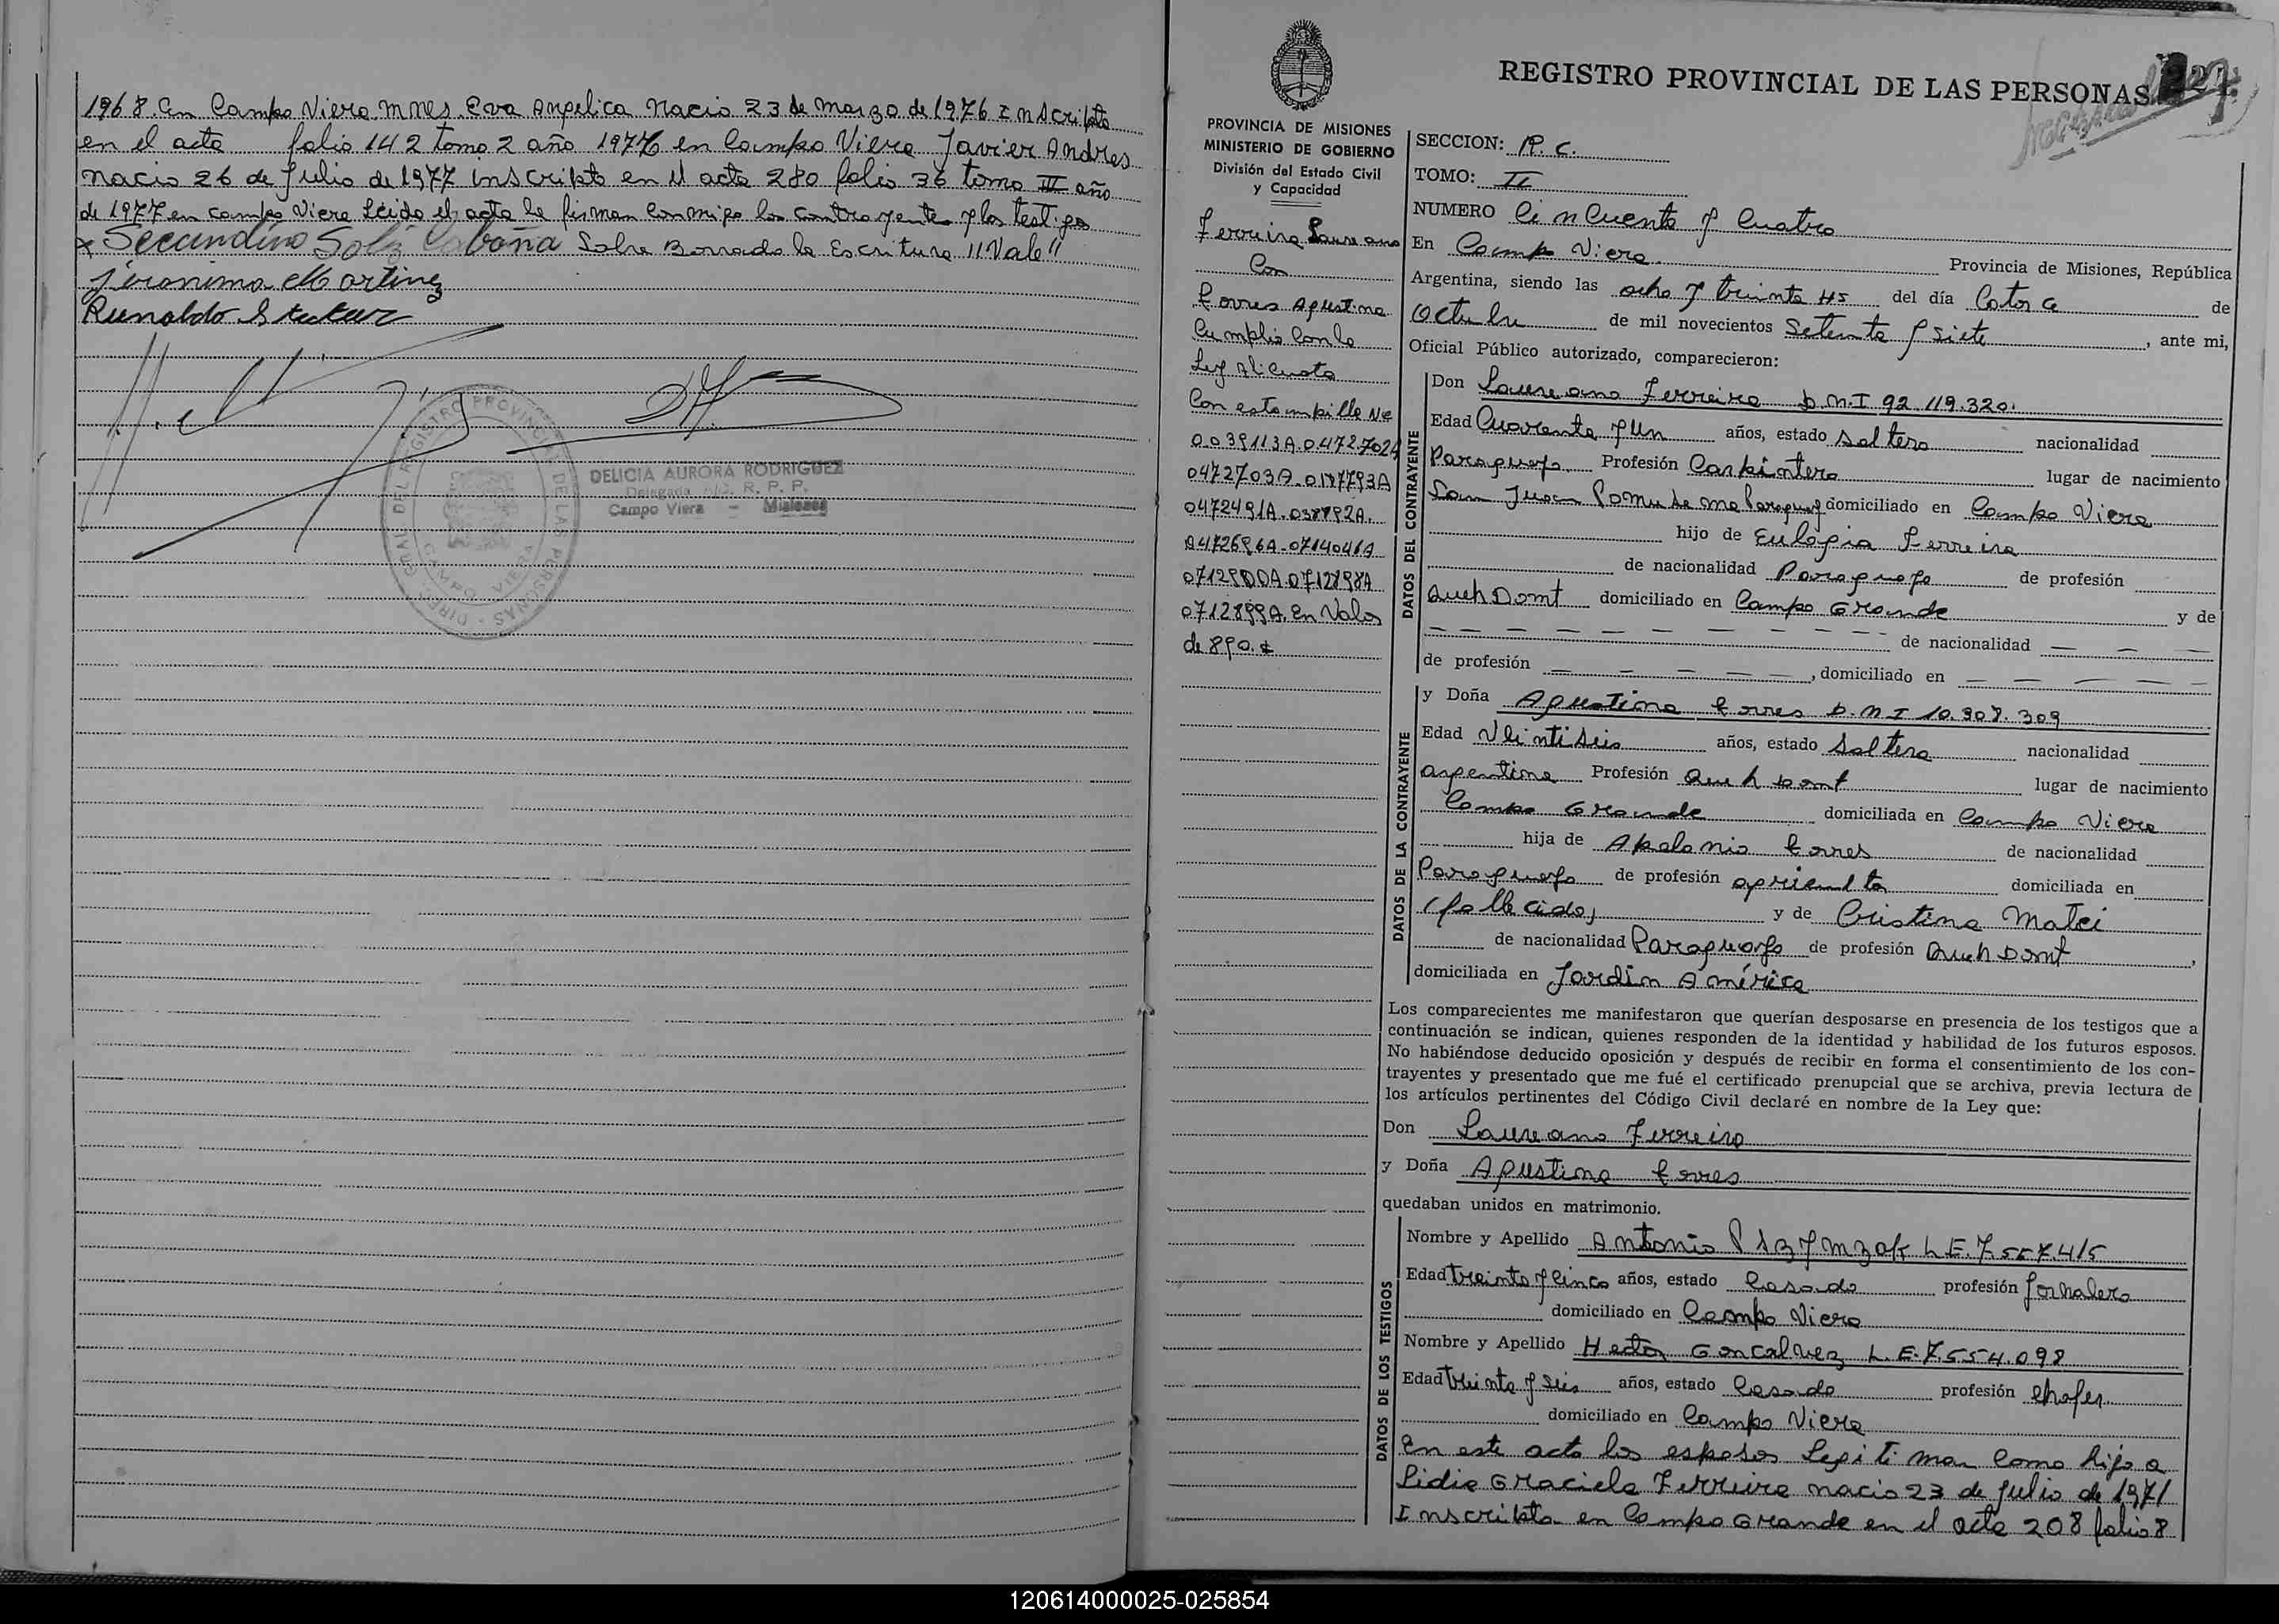 1968. en Campo Viera. Mnes. Eva Angelica Nacio 23 de marzo de 1976 Inscripta
en el acta folio 142 tomo 2 año 1976 en Campo Viera Javier Andres
nacio 26 de Julio de 1977 inscripto en el acta 280 folio 36 tomo III año
de 1977 en campo Viera Leido el acta la firman conmigo los contrayentes y los testigos
x Secundino Solis Cabaña Sobre Borrado la Escritura "Vale"
Jeronima Martinez
DIREC. GRAL. DEL REGISTRO PROVINCIAL DE LAS PERSONAS
CAMPO VIERA
DELICIA AURORA RODRIGUEZ
Delegada R. P. P.
Campo Viera - Misiones
REGISTRO PROVINCIAL DE LAS PERSONAS
PROVINCIA DE MISIONES
MINISTERIO DE GOBIERNO
División del Estado Civil
y Capacidad
Ferreira Laureano
Con
Torres Agustina
Cumplio con la
Ley Alicuota
Con estampilla No
0472703A-0187793A
de 890.$
SECCION: R. C.
TOMO: II
NUMERO Cincuenta y Cuatro
En Campo Viera Provincia de Misiones, República
Argentina, siendo las ocho y treinta Hs del día Catorce de
Octubre de mil novecientos Setenta y siete, ante mi,
Oficial Público autorizado, comparecieron:
DATOS DEL CONTRAYENTE
Don Laureano Ferreira D.N.I 92.119.320.
Edad Cuarenta y Un años, estado Soltero nacionalidad
Paraguayo Profesión Carpintero lugar de nacimiento
San Juan Pomuseno Paraguay domiciliado en Campo Viera
hijo de Eulogia Ferreira
de nacionalidad Paraguaya de profesión
Queh Domt domiciliado en Campo Grande y de
— — — de nacionalidad — — —
de profesión — — — —, domiciliado en — — — —
DATOS DE LA CONTRAYENTE
y Doña Agustina Torres D.N.I 10.908.309
Edad Veintiseis años, estado Soltera nacionalidad
argentina Profesión Queh Domt lugar de nacimiento
Campo Grande domiciliada en Campo Viera
hija de Apolonio Torres de nacionalidad
Paraguayo de profesión agricultor domiciliada en
(fallecido) y de Cristina Matei
de nacionalidad Paraguaya de profesión Queh Domt,
domiciliada en Jardin América
Los comparecientes me manifestaron que querían desposarse en presencia de los testigos que a
continuación se indican, quienes responden de la identidad y habilidad de los futuros esposos.
No habiéndose deducido oposición y después de recibir en forma el consentimiento de los con-
trayentes y presentado que me fué el certificado prenupcial que se archiva, previa lectura de
los artículos pertinentes del Código Civil declaré en nombre de la Ley que:
Don Laureano Ferreira
y Doña Agustina Torres
quedaban unidos en matrimonio.
DATOS DE LOS TESTIGOS
Nombre y Apellido Antonio L.E. 7.557.415
Edad treinta y Cinco años, estado Casado profesión Jornalero
domiciliado en Campo Viera
Nombre y Apellido Hector Goncalvez L.E. 7.554.098
Edad treinta y Seis años, estado Casado profesión Chofer
domiciliado en Campo Viera
En este acto los esposos Legitiman como hija a
Lidia Graciela Ferreira nacio 23 de Julio de 1971
Inscripta en Campo Grande en el acta 208 folio 8
120614000025-025854